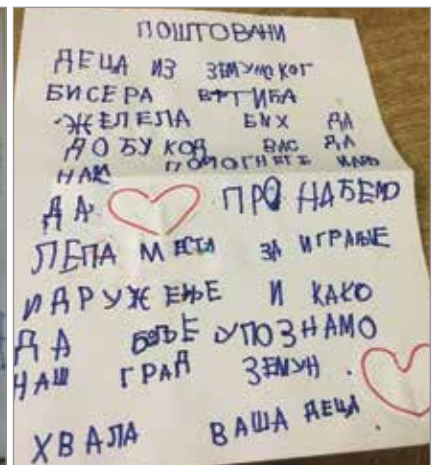 ПОШТОВАНИ
ДЕЦА ИЗ ЗЕМУНСКОГ
БИСЕРА ВРТИБА
ЖЕЛЕЛА БИХ ДА
ДОБУ КОД ВАС ДА
НАМ ПОМОГНЕТЕ
ДА ПРОНАБЕМО
ЛЕПА МЕСТА ЗА ИГРАЊЕ
И ДРУЖЕЊЕ И КАКО
ДА БОЉЕ УПОЗНАМО
НАШ ГРАД ЗЕМУН.
ХВАЛА ВАША ДЕЦА.